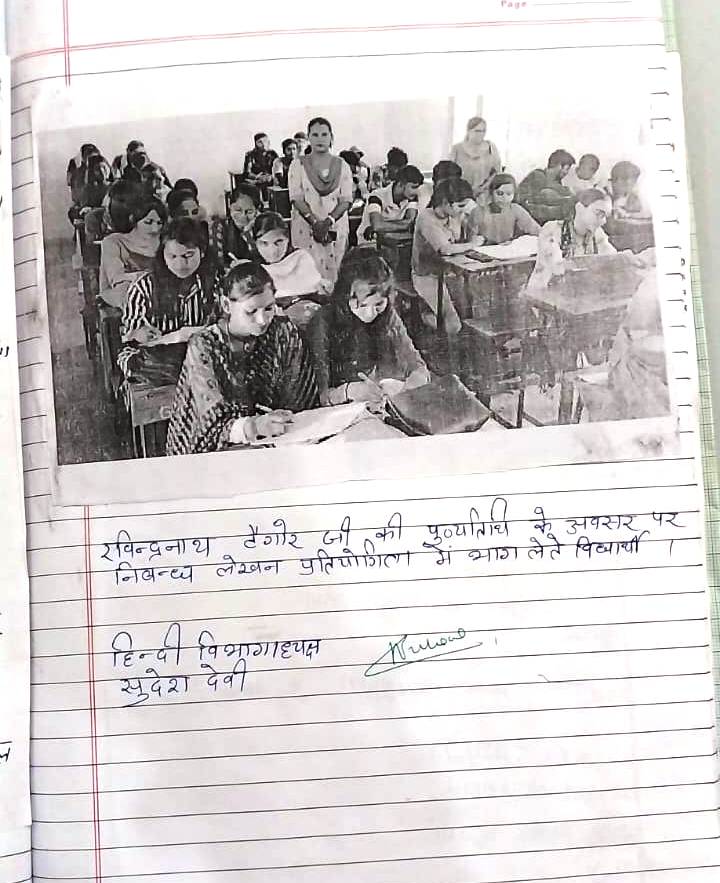 Page
रविन्द्रनाथ टैगोर जी की पुण्यतिथि के अवसर पर
निबन्ध लेखन प्रतियोगिता में भाग लेते विद्यार्थी ।
हिन्दी विभागाध्यक्ष
सुदेश देवी